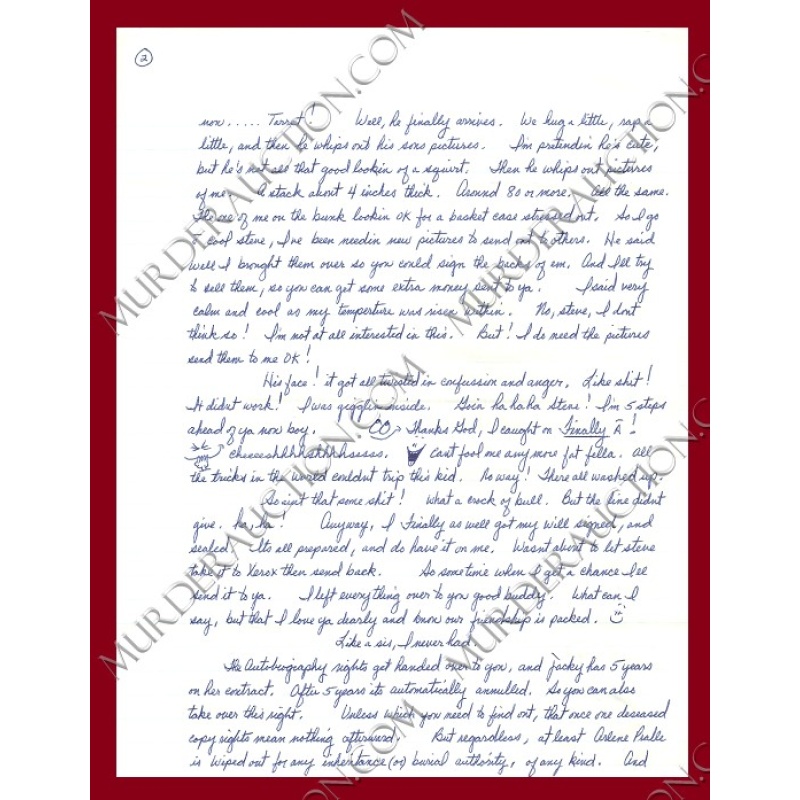 ②
now ..... Terret! Well, he finally arrives. We hug a little, rap a
little, and then he whips out his sons pictures. I'm pretendin he's cute,
but he's not all that good lookin of a squirt. Then he whips out pictures
of me. A stack about 4 inches thick. Around 80 or more. All the same.
The one of me on the bunk lookin OK for a basket case stressed out. So I go
cool steve, I've been needin new pictures to send out to others. He said
well I brought them over so you could sign the backs of em. And I'll try
to sell them, so you can get some extra money sent to ya. I said very
calm and cool as my temperture was risen within. No, steve, I dont
think so! I'm not at all interested in this. But! I do need the pictures
send them to me OK!
His face! it got all twisted in confussion and anger. Like shit!
It didnt work! I was gigglin inside. Goin ha ha ha Steve! I'm 5 steps
ahead of ya now boy. Thanks God, I caught on Finally
cheeeeshhhhshhhhsssss. Cant fool me any more fat fella. All
the tricks in the world couldnt trip this kid. No way! There all washed up.
So aint that some shit! What a crock of bull. But the line didnt
give. ha, ha! Anyway, I Finally as well got my will signed, and
sealed. Its all prepared, and do have it on me. Wasnt about to let steve
take it to Xerox then send back. So sometime when I get a chance I'll
send it to ya. I left everything over to you good buddy. What can I
say, but that I love ya dearly and know our friendship is packed.
Like a sis, I never had.
The Autobiography rights got handed over to you, and Jacky has 5 years
on her contract. After 5 years its automatically annulled. So you can also
take over this right. Unless which you need to find out, that once one deseased
copyrights mean nothing afterward. But regardless, at least Arlene Pralle
is wiped out for any inheritance (or) burial authority, of any kind. And
MURDERAUCTION.COM
MURDERAUCTION.COM
MURDERAUCTION.COM
MURDERAUCTION.COM